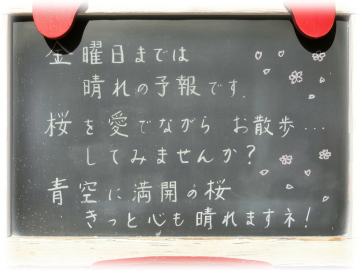 金曜日までは
晴れの予報です.
桜を愛でながら お散歩…
してみませんか?
青空に満開の桜
きっと心も晴れますネ!